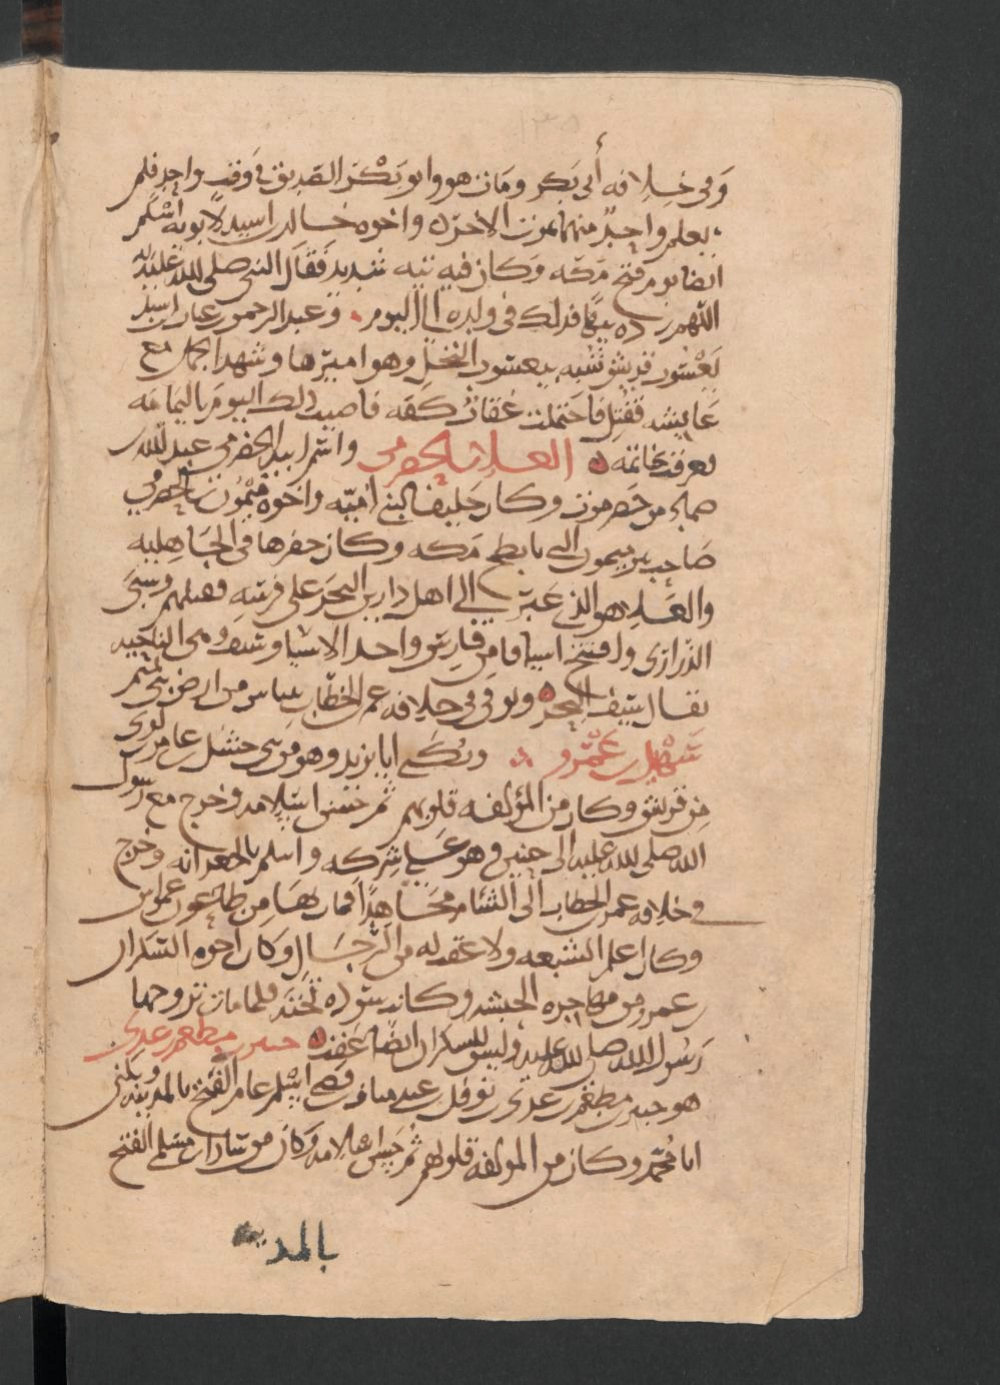 وفى خلافه أبى بكر ومات هو وابو بكر الصديق فى وقت واحد فلم
يعلم واحد منهما بموت الاخر ه واخوه خالد بن اسيد لابويه اسلم
ايضا يوم فتح مكه وكان فيه تيه شديد فقال النبى صلى الله عليه
اللهم زده تيها فذلك فى ولده الى اليوم . وعبد الرحمن بن عتاب بن اسيد
يعسوب قريش شبه بيعسوب النحل وهو اميرها وشهد الجمل مع
عايشه فقتل فاحتملت عقاب كفه فاصيب ذلك اليوم باليمامه
يعرف بخاتمه ه العلا بن الحضرمى واسم ابيه الحضرمى عبد الله بن
ضماد من حضرموت وكان حليفا لبنى اميه واخوه ميمون بن الحضرمى
صاحب بير ميمون التى بابطح مكه وكان حفرها فى الجاهليه
والعلا هو الذى عبر الى اهل دارين البحر على فرسه فقتلهم وسبى
الذرارى وافتتح اسيافا من فارس واحد الاسياف سيف وهى الناحيه
يقال سيف البحر ه وتوفى فى خلافه عمر بن الخطاب بتياس من ارض بنى تميم
سهيل بن عمرو ه ويكنى ابا يزيد وهو من بنى حسل بن عامر بن لوى
من قريش وكان من المولفه قلوبهم ثم حسن اسلامه وخرج مع رسول
الله صلى الله عليه الى حنين وهو على شركه واسلم بالجعرانه وخرج
فى خلافه عمر بن الخطاب الى الشام مجاهدا فمات بها من طاعون عمواس
وكان اعلم الشفه ولا عقب له من الرجال وكان اخوه السكران
بن عمرو من مهاجره الحبشه وكانت سوده تحته فلما مات تزوجها
رسول الله صلى الله عليه وليس للسكران ايضا عقب ه جبير بن مطعم بن عدى
هو جبير بن مطعم بن عدى بن نوفل بن عبد مناف بن قصى اسلم عام الفتح بالمدينه ويكنى
ابا محمد وكان من المولفه قلوبهم ثم حسن اسلامه وكان من سادات مسلمى الفتح
بالمدينه